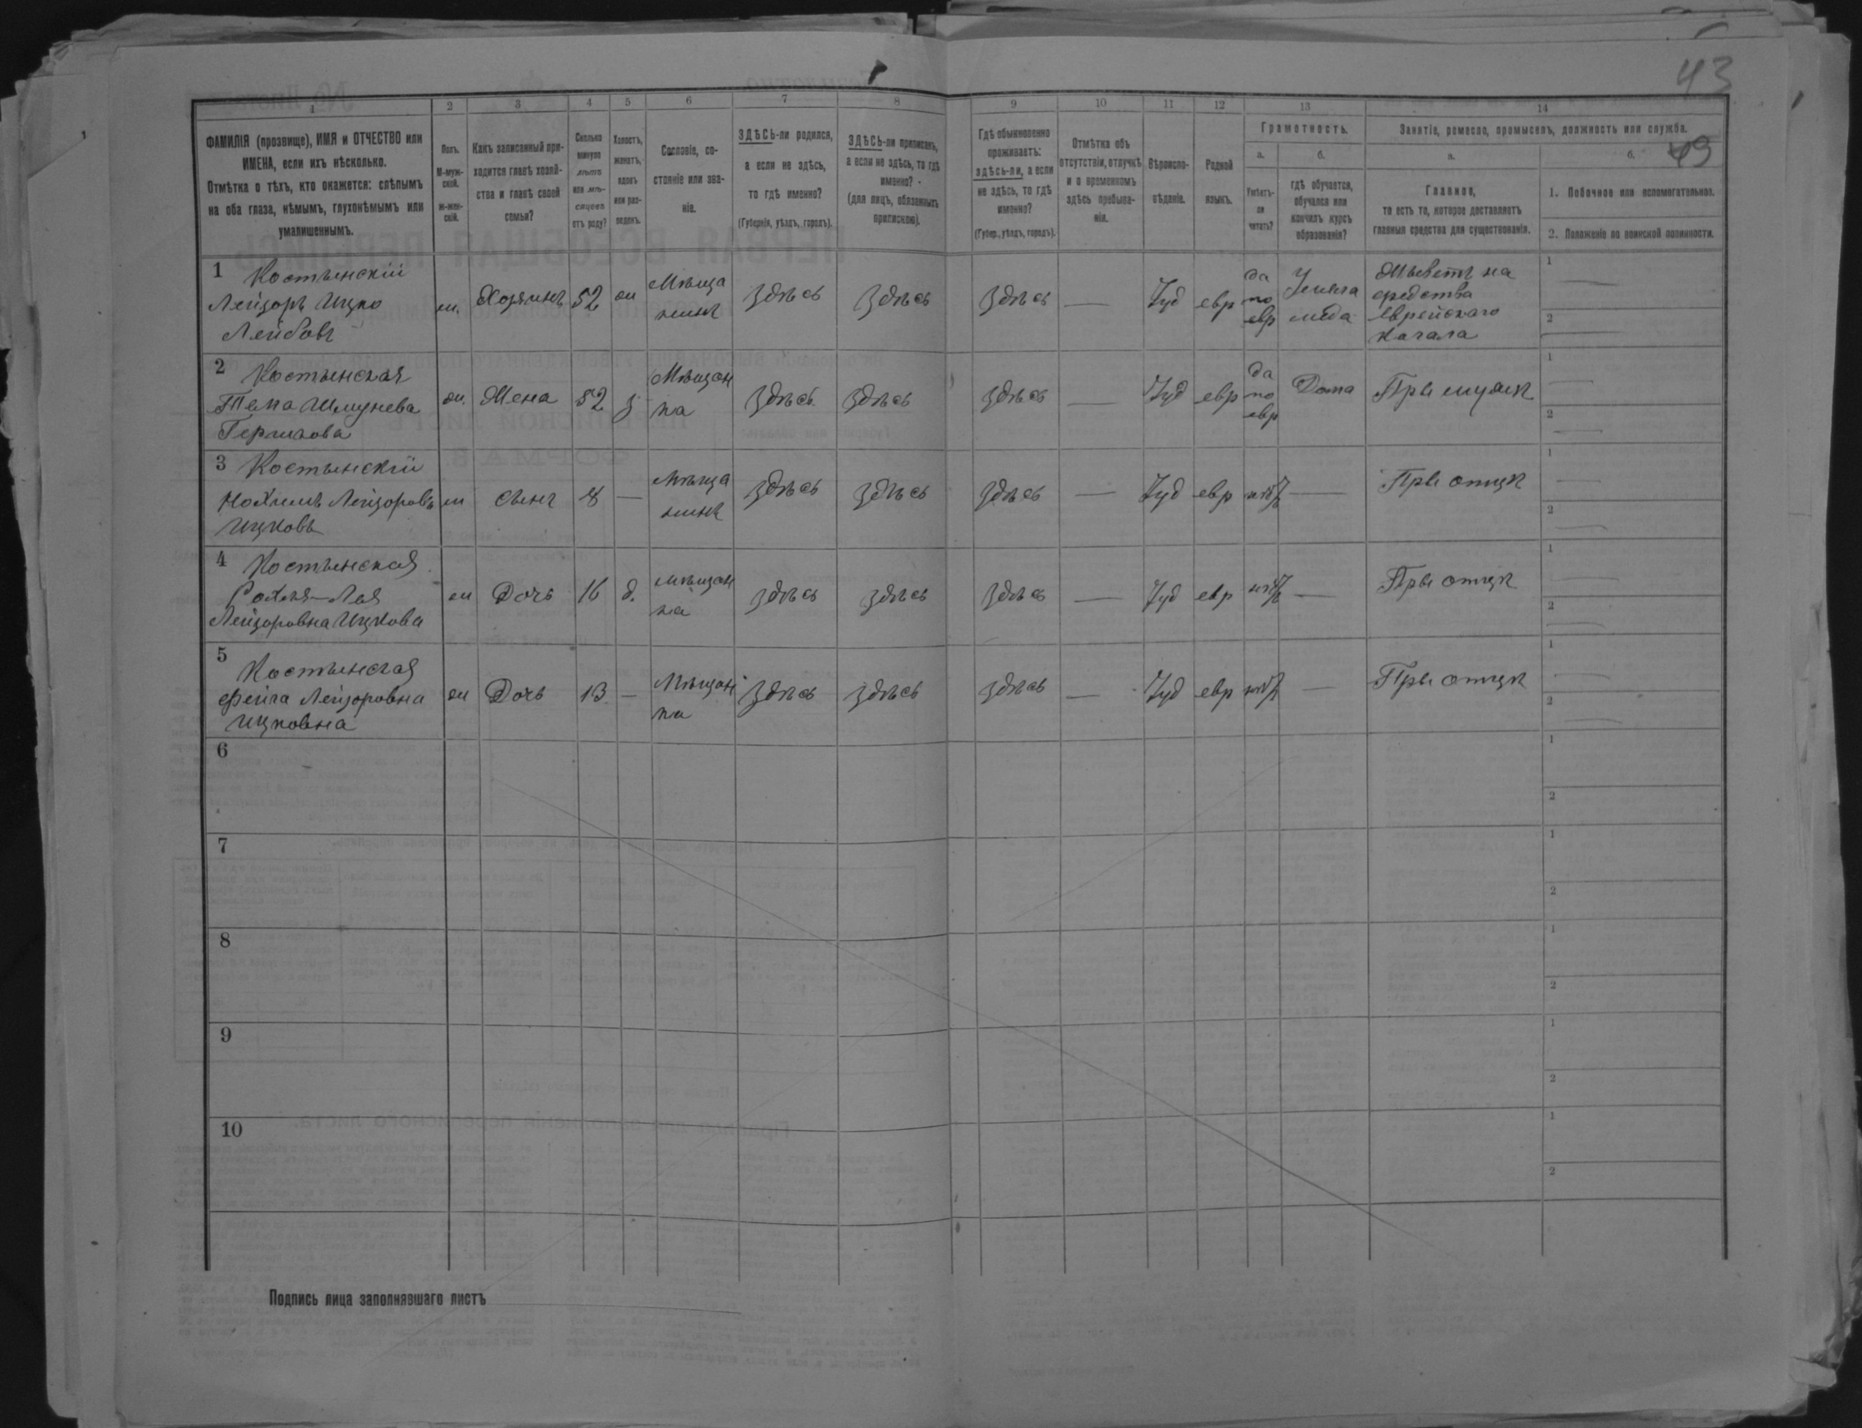 43
49
1
2
3
4
5
6
7
8
9
10
11
12
13
14
ФАМИЛІЯ (прозвище), ИМЯ и ОТЧЕСТВО или
ИМЕНА, если ихъ нѣсколько.
Отмѣтка о тѣхъ, кто окажется: слѣпымъ
на оба глаза, нѣмымъ, глухонѣмымъ или
умалишеннымъ.
Полъ.
М-муж-
ской.
Ж-жен-
скій.
Какъ записанный при-
ходится главѣ хозяй-
ства и главѣ своей
семьи?
Сколько
минуло
лѣтъ
или мѣ-
сяцевъ
отъ роду?
Холостъ,
женатъ,
вдовъ
или раз-
веденъ.
Сословіе, со-
стояніе или зва-
ніе.
ЗДѢСЬ-ли родился,
а если не здѣсь,
то гдѣ именно?
(Губернія, уѣздъ, городъ).
ЗДѢСЬ-ли приписанъ,
а если не здѣсь, то гдѣ
именно?
(для лицъ, обязанныхъ
припискою).
Гдѣ обыкновенно
проживаетъ:
здѣсь-ли, а если
не здѣсь, то гдѣ
именно?
(Губер., уѣздъ, городъ).
Отмѣтка объ
отсутствіи, отлучкѣ
и о временномъ
здѣсь пребыва-
ніи.
Вѣроиспо-
вѣданіе.
Родной
языкъ.
Грамотность.
а.
б.
Умѣетъ-
ли
читать?
гдѣ обучается,
обучался или
кончилъ курсъ
образованія?
Занятіе, ремесло, промыселъ, должность или служба.
а.
б.
Главное,
то есть то, которое доставляетъ
главныя средства для существованія.
1. Побочное или вспомогательное.
2. Положеніе по воинской повинности.
1 Костынскій
Лейзоръ Ицко
Лейбовъ
м.
Хозяинъ
52
ж
Мѣща
нинъ
Здѣсь
Здѣсь
Здѣсь
—
Іуд
евр
да
по
евр
У мела
меда
Живетъ на
средства
Еврейскаго
кагала
1
2
2 Костынская
Тема Шмулева
Гершкова
ж.
Жена
52
з
Мѣщан
ка
Здѣсь
Здѣсь
Здѣсь
—
Іуд
евр
да
по
евр
Дома
При мужѣ
1
2
3 Костынскій
Нохимъ Лейзоровъ
Ицковъ
м
сынъ
8
—
Мѣща
нинъ
Здѣсь
Здѣсь
Здѣсь
—
Іуд
евр
нѣт
—
При отцѣ
1
2
4 Костынская
Рохля-Лая
Лейзоровна Ицкова
ж
Дочь
16
д.
Мѣщан
ка
Здѣсь
Здѣсь
Здѣсь
—
Іуд
евр
нѣт
—
При отцѣ
1
2
5 Костынская
Фейга Лейзоровна
Ицковна
ж
Дочь
13
—
Мѣщан
ка
Здѣсь
Здѣсь
Здѣсь
—
Іуд
евр
нѣт
—
При отцѣ
1
2
6
1
2
7
1
2
8
1
2
9
1
2
10
1
2
Подпись лица заполнявшаго листъ